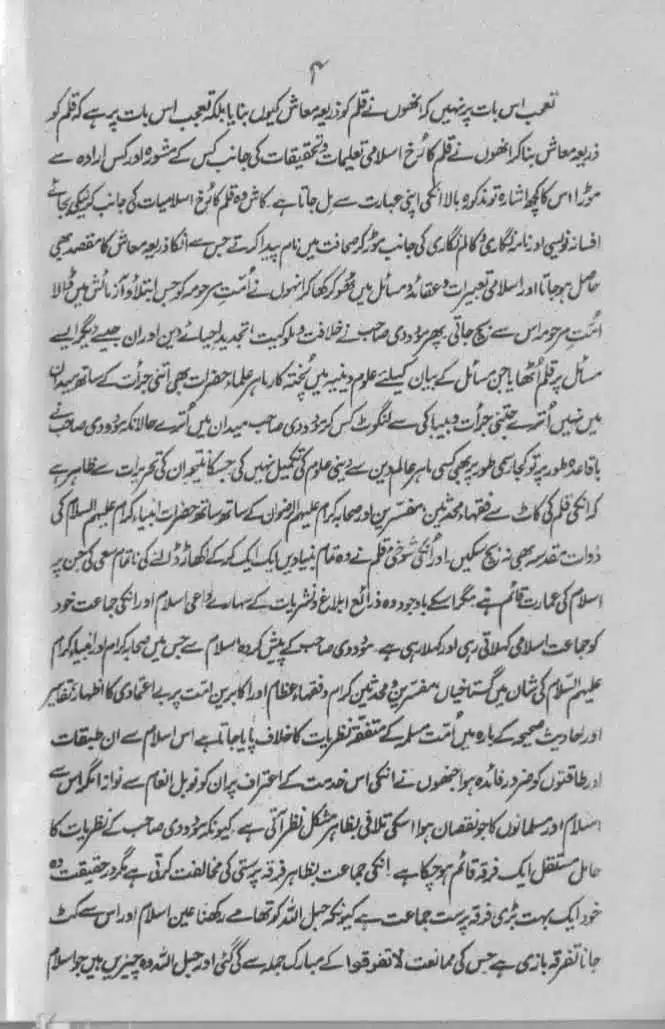 ۴
تعجب اس بات پر نہیں کہ انھوں نے قلم کو ذریعہ معاش کیوں بنایا بلکہ تعجب اس بات پر ہے کہ قلم کو
ذریعہ معاش بنا کر انھوں نے قلم کا رُخ اسلامی تعلیمات و تحقیقات کی جانب کس کے مشورہ اور کس ارادہ سے
موڑا اس کا کچھ اشارہ تو مذکورہ بالا انکی اپنی عبارت سے مل جاتا ہے۔ کاش وہ قلم کا رُخ اسلامیات کی جانب کرنیکی بجائے
افسانہ نویسی اور نامہ نگاری و کالم نگاری کی جانب موڑ کر صحافت میں نام پیدا کرتے جس سے انکا ذریعہ معاش کا مقصد بھی
حاصل ہو جاتا اور اسلامی تعبیرات و عقائد و مسائل میں ٹھوکر کھا کر انہوں نے اُمّتِ مرحومہ کو جس ابتلاؤ آزمائش میں ڈالا
اُمّتِ مرحومہ اس سے بچ جاتی۔ پھر مودودی صاحب نے خلافت و ملوکیت، تجدید احیائے دین اور ان جیسے دیگر ایسے
مسائل پر قلم اُٹھایا جن مسائل کے بیان کیلئے علوم دینیہ میں پُختہ کار ماہر علماء حضرات بھی اتنی جرأت کے ساتھ میدان
میں نہیں اُترے جتنی جرأت و بیباکی سے لنگوٹ کس کر مودودی صاحب میدان میں اُترے حالانکہ مودودی صاحب نے
باقاعدہ طور پر تو کجا رسمی طور پر بھی کسی ماہر عالم دین سے دینی علوم کی تکمیل نہیں کی جسکا نتیجہ ان کی تحریرات سے ظاہر ہے
کہ انکی قلم کی کاٹ سے فقہاء، محدثین، مفسرین اور صحابہ کرام علیہم الرضوان کے ساتھ ساتھ حضرات انبیاء کرام علیہم السلام کی
ذوات مقدسہ بھی نہ بچ سکیں۔ اور اُنکی شوخی قلم نے وہ تمام بنیادیں ایک ایک کر کے اکھاڑ ڈالنے کی ناتمام سعی کی جن پر
اسلام کی عمارت قائم ہے مگر اسکے باوجود وہ ذرائع ابلاغ و نشریات کے سہارے داعی اسلام اور انکی جماعت خود
کو جماعت اسلامی کہلاتی رہی اور کہلا رہی ہے۔ مودودی صاحب کے پیش کردہ اسلام سے جس میں صحابہ کرام اور انبیاء کرام
علیہم السّلام کی شان میں گستاخیاں، مفسرین و محدثین کرام و فقہاء عظام اور اکابرین امّت پر بے اعتمادی کا اظہار، تفاسیر
اور احادیث صحیحہ کے بارہ میں اُمّت مسلمہ کے متفقہ نظریات کا خلاف پایا جاتا ہے اس اسلام سے ان طبقات
اور طاقتوں کو ضرور فائدہ ہوا جنھوں نے انکی اس خدمت کے اعتراف پر ان کو نوبل انعام سے نوازا مگر اس سے
اسلام اور مسلمانوں کا جو نقصان ہوا اسکی تلافی بظاہر مشکل نظر آتی ہے۔ کیونکہ مودودی صاحب کے نظریات کا
حامل مستقل ایک فرقہ قائم ہو چکا ہے انکی جماعت بظاہر فرقہ پرستی کی مخالفت کرتی ہے مگر درحقیقت وہ
خود ایک بہت بڑی فرقہ پرست جماعت ہے کیونکہ حبل اللہ کو تھامے رکھنا عین اسلام اور اس سے کٹ
جانا تفرقہ بازی ہے جس کی ممانعت لا تفرقوا کے مبارک جملہ سے کی گئی اور حبل اللہ وہ چیزیں ہیں جو اسلام